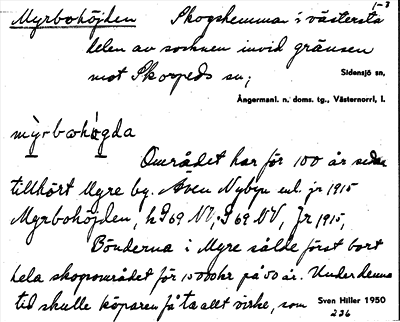 1-3
Myrbohöjden Skogshemman i västersta
delen av socknen invid gränsen
mot Skorpeds sn;
Sidensjö sn,
Ångermanl. n. doms. tg., Västernorrl. l.
Området har för 100 år sedan
tillhört Myre by. Även Nybyn enl. jr 1915
Myrbohöjden, hG69 NV, G69 NV, Jr 1915,
Bönderna i Myre sålde först bort
hela skogsområdet för 15000kr på 50 år. Under denna
tid skulle köparen få ta allt virke, som
Sven Hiller 1950
236